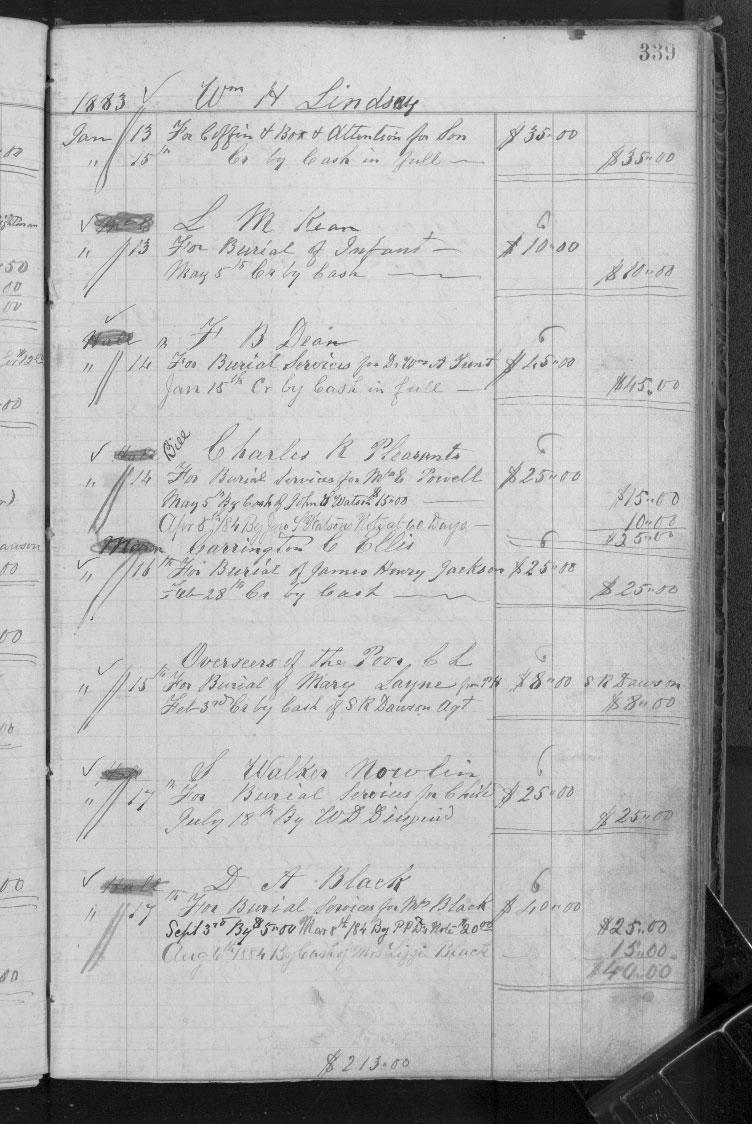 339
1883 ✓ Wm H Lindsey
Jan 13 For Coffin & Box & Attention for Son $35.00
" 15th Cr by Cash in full — $35.00
✓ L M Kean 6
" 13 For Burial of Infant — $10.00
May 5th Cr by Cash — $10.00
✓
Hall F B Dean 6
" 14 For Burial Services for Dr Wm A $45.00
Jan 15th Cr by Cash in full — $45.00
✓ Bill Charles R Pleasants 6
" 14 For Burial Services for Powell $25.00
May 5th By Cash of John S Watson $15.00 — $15.00
Apr 8th /84 By Jno S Watsons Note at 60 Days — 10.00
$25.00
Mason Carrington C Ellis 6
✓ " 16th For Burial of James Henry Jackson $25.00
Feb 28th Cr by Cash — $25.00
✓ Overseers of the Poor C L 6
" 15th For Burial of Mary Layne from $8.00 S R Dawson
Feb 3rd Cr by Cash of S R Dawson Agt $8.00
✓ S Walker Nowlin 6
" 17th For Burial Services for Child $25.00
July 18th By W D $25.00
✓ Hall D A Black 6
" 17th For Burial Services for Black $40.00
Sept 3rd By $5.00 Mar 8th /84 By Note $20.00 $25.00
Aug 6th 1884 By Cash of Mrs Lizzie Black — 15.00
$40.00
$213.00